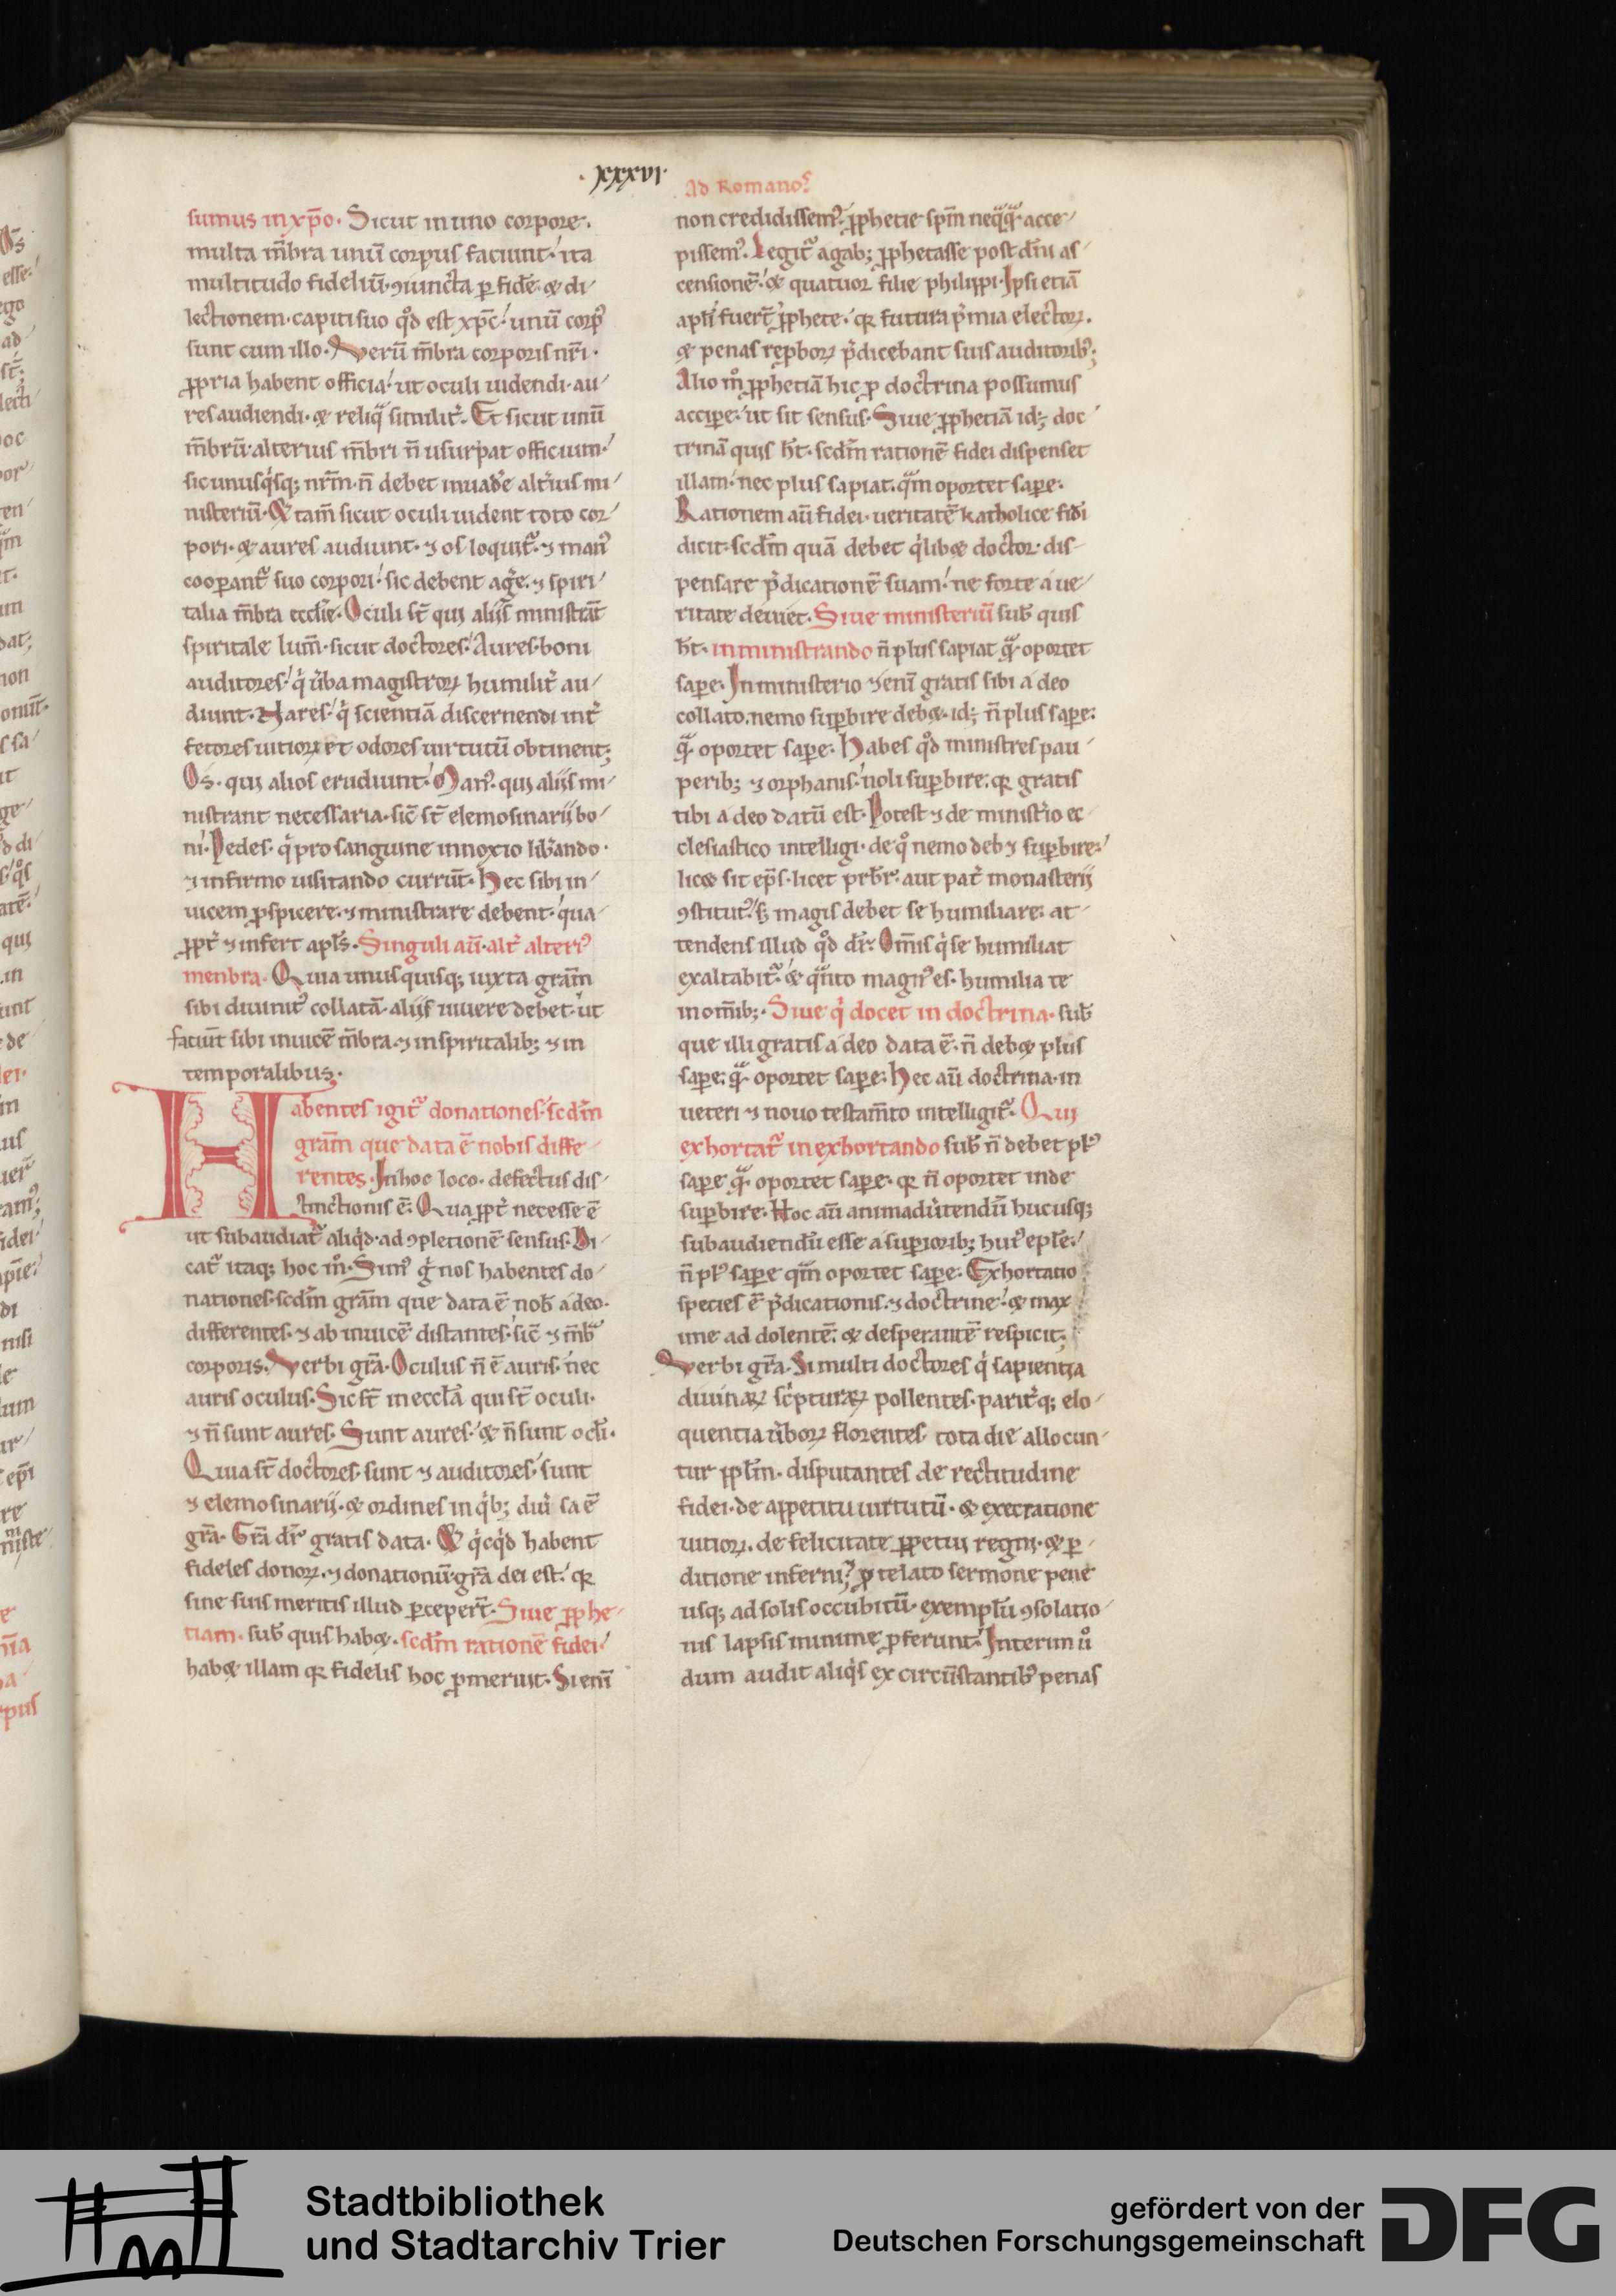 xxxvi·
Ad Romanos
sumus in xp̄o. Sicut in uno corpore.
multa m̄bra unū corpus faciunt. ita
multitudo fideliū. ꝯiuncta ꝑ fidē. & di-
lectionem. capiti suo qd̊ est xp̄c. unū corpꝰ
sunt cum illo. Verū m̄bra corporis nr̄i.
ꝓpria habent officia. ut oculi uidendi. au-
res audiendi. & reliqͣ similit̾. Et sicut unū
m̄brū. alterius m̄bri n̄ usurpat officium.
sic unusqͥsq; nr̄m. n̄ debet inuad̾e alt̾ius mi-
nisteriū. Et tam̄ sicut oculi uident toto cor-
pori. & aures audiunt. ⁊ os loquit᷑. ⁊ manꝰ
cooꝑant᷑ suo corpori. sic debent ag̾e. ⁊ spiri-
talia m̄bra eccl̄ie. Oculi st̄ qui aliis ministrāt
spiritale lum̄. sicut doctores. Aures. boni
auditores. qͥ u̾ba magistroꝝ humilit̾ au-
diunt. Nares. qͥ scientiā discernendi int̾
fetores uitioꝝ et odores uirtutū obtinent;
Os. qui alios erudiunt. Manꝰ. qui aliis mi-
nistrant necessaria. sic̄ st̄ elemosinarii bo-
ni. Pedes. qͥ pro sanguine innoxio lib̾ando.
⁊ infirmo uisitando currūt. Hec sibi in-
uicem ꝓspicere. ⁊ ministrare debent. qua-
ꝓpt̾ ⁊ infert apl̄s. Singuli aū. alt̾ alteriꝰ
menbra. Quia unusquisq; iuxta grām
sibi diuinitꝰ collatā. aliis uiuere debet. ut
faciūt sibi inuicē m̄bra. ⁊ in spiritalib; ⁊ in
temporalibus.
Habentes igit᷑ donationes. scdm̄
grām que data ē nobis diffe-
rentes. In hoc loco. defectus dis-
tinctionis ē. Quaꝓpt̾ necesse ē
ut subaudiat᷑ aliqͥd. ad ꝯpletionē sensus. Di-
cat᷑ itaq; hoc m̊. Simꝰ g̾ nos habentes do-
nationes. scdm̄ grām que data ē nob̄ a deo.
differentes. ⁊ ab inuicē distantes. sic̄ ⁊ m̄bͣ
corporis. Verbi grā. Oculus n̄ ē auris. nec
auris oculus. Sic st̄ in eccl̄a qui st̄ oculi.
⁊ n̄ sunt aures. Sunt aures. & n̄ sunt ocl̄i.
Quia st̄ doctores. sunt ⁊ auditores. sunt
⁊ elemosinarii. & ordines in qͥb; diu̾sa ē
grā. Grā dr̄ gratis data. Et qͥcqͥd habent
fideles donoꝝ. ⁊ donationū. grā dei est. qꝛ
sine suis meritis illud ꝑceper̄t. Siue ꝓphe-
tiam. sub̄ quis hab&. scdm̄ rationē fidei.
hab& illam qꝛ fidelis hoc ꝓmeruit. Si enī
non credidissemꝰ. ꝓphetie sp̄m neqͣqͣ. acce-
pissemꝰ. Legit᷑ agab; ꝓphetasse post dn̄i as-
censionē. & quatuor filie philippi. Ipsi etiā
apl̄i fuer̄t ꝓphete. qꝛ futura p̄mia electoꝝ.
& penas reꝓboꝝ p̄dicebant suis auditorib;
Alio m̊ ꝓphetiā hic ꝓ doctrina possumus
accipe. ut sit sensus. Siue ꝓphetiā id;. doc-
trinā quis h̄t. scdm̄ rationē fidei dispenset
illam. nec plus sapiat. qͣm oportet saꝑe.
Rationem aū fidei. ueritatē katholice fidi
dicit. scdm̄ quā debet qͥlib& doctor. dis-
pensare p̄dicationē suam. ne forte a ue-
ritate deuiet. Siue ministeriū sub̄ quis
h̄t. in ministrando n̄ plus sapiat qͣ. oportet
saꝑe. In ministerio ⁊enī gratis sibi a deo
collato. nemo suꝑbire deb&. id;. n̄ plus saꝑe.
qͣ. oportet saꝑe. Habes qd̊ ministres pau-
perib; ⁊ orphanis. noli suꝑbire. qꝛ gratis
tibi a deo datū est. Potest ⁊ de minist̾io ec-
clesiastico intelligi. de qͦ nemo deb& suꝑbire.
lic& sit ep̄s. licet pr̄br̄. aut pat̾ monasterii
ꝯstitutꝰ. s; magis debet se humiliare. at-
tendens illud qd̊ dr̄. Om̄is qͥ se humiliat
exaltabit᷑. & qͣnto magnꝰ es. humilia te
in om̄ib;. Siue qͥ docet in doctrina. sub̄
que illi gratis a deo data ē. n̄ deb& plus
saꝑe. qͣ. oportet saꝑe. Hec aū doctrina. in
ueteri ⁊ nouo testam̄to intelligit᷑. Qui
exhortat᷑ in exhortando sub̄ n̄ debet plꝰ
saꝑe qͣ. oportet saꝑe. qꝛ n̄ oportet inde
suꝑbire. Hoc aū animadu̾tendū hucusq;
subaudiendū esse a suꝑiorib; huiꝰ epl̄e.
n̄ plꝰ saꝑe qm̄ oportet saꝑe. Exhortatio
species ē p̄dicationis. ⁊ doctrine. & max-
ime ad dolentē. & desperantē respicit.
Verbi grā. Si multi doctores qͥ sapientia
diuinaꝝ sc̾pturaꝝ pollentes. parit̾q; elo-
quentia u̾boꝝ florentes. tota die allocun-
tur ppl̄m. disputantes de rectitudine
fidei. de appetitu uirtutū. & execratione
uitioꝝ. de felicitate ꝑpetui regni. & ꝑ-
ditione inferni. ꝓtelato sermone pene
usq; ad solis occubitū. exemplū ꝯsolatio-
nis lapsis minime ꝓferunt. Interim u̾o
dum audit aliqͥs ex circūstantibꝰ penas
Stadtbibliothek
und Stadtarchiv Trier
gefördert von der
Deutschen Forschungsgemeinschaft
DFG